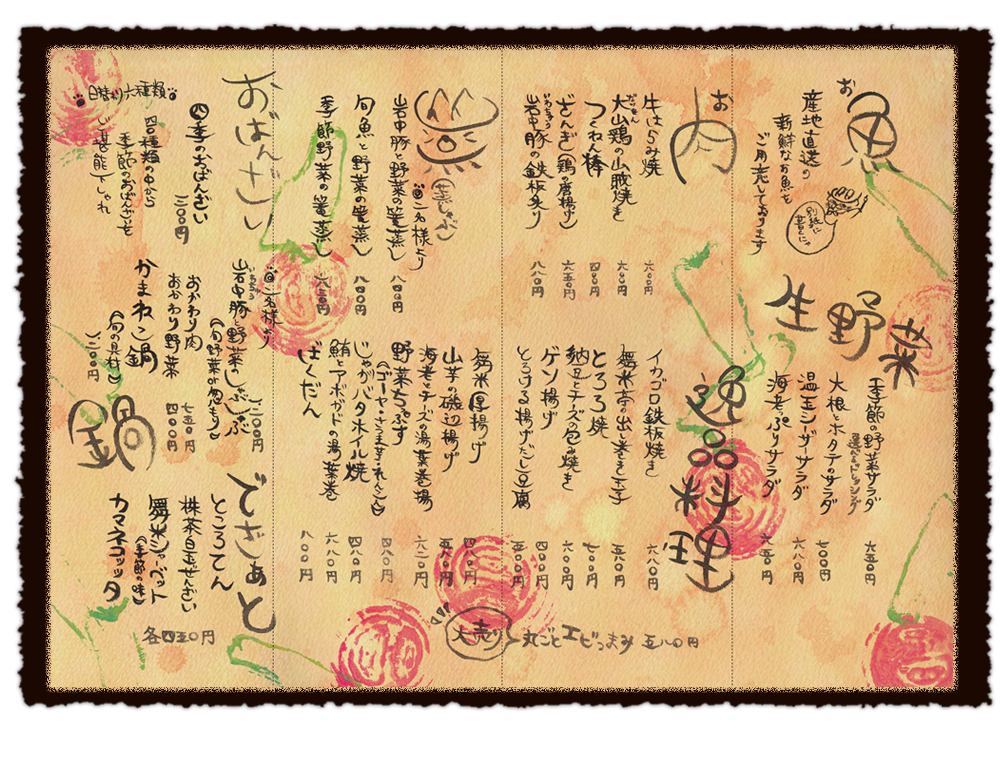 お魚
産地直送の
新鮮なお魚を
ご用意しております
別紙に
書くにゃ
生野菜
季節の野菜サラダ 六五〇円
選べるドレッシング
大根とホタテのサラダ 七〇〇円
温玉シーザーサラダ 六八〇円
海老ぷりサラダ 六五〇円
お肉
牛はらみ焼 六〇〇円
大山鶏の山賊焼き 六〇〇円
つくね棒 四〇〇円
ざんぎ(鶏の唐揚げ) 六五〇円
岩中豚の鉄板炙り 八八〇円
逸品料理
イカゴロ鉄板焼き 六八〇円
舞米亭の出し巻き玉子 五八〇円
とろろ焼 七〇〇円
納豆とチーズの包み焼き 六〇〇円
ゲソ揚げ 四〇〇円
とろける揚げだし豆腐 五〇〇円
舞米厚揚げ 四八〇円
山芋の磯辺揚げ 五八〇円
海老とチーズの湯葉巻揚 六二〇円
野菜ちっぷす 四八〇円
(ゴーヤ・さつま芋・れんこん)
じゃがバタホイル焼 四八〇円
鮪とアボガドの湯葉巻 六八〇円
ばくだん 八〇〇円
大売り
丸ごとエビつまみ 五八〇円
(蒸しゃぶ)
二名様より
岩中豚と野菜の篭蒸し 八四〇円
旬魚と野菜の篭蒸し 八四〇円
季節野菜の篭蒸し 六三〇円
おばんざい
四季のおばんざい 三〇〇円
日替り六種類
四種類の中から
季節のおばんざいを
ご堪能下しゃれ
鍋
二名様より
岩中豚と野菜のしゃぶしゃぶ 一二〇〇円
(旬野菜が忽もり)
おかわり肉 七五〇円
おかわり野菜 四〇〇円
かまねこ鍋
(旬の具材) 一二〇〇円
でざぁと
ところてん
抹茶白玉ぜんざい
舞米シャーベット
(季節の味)
カマネコッタ
各四五〇円